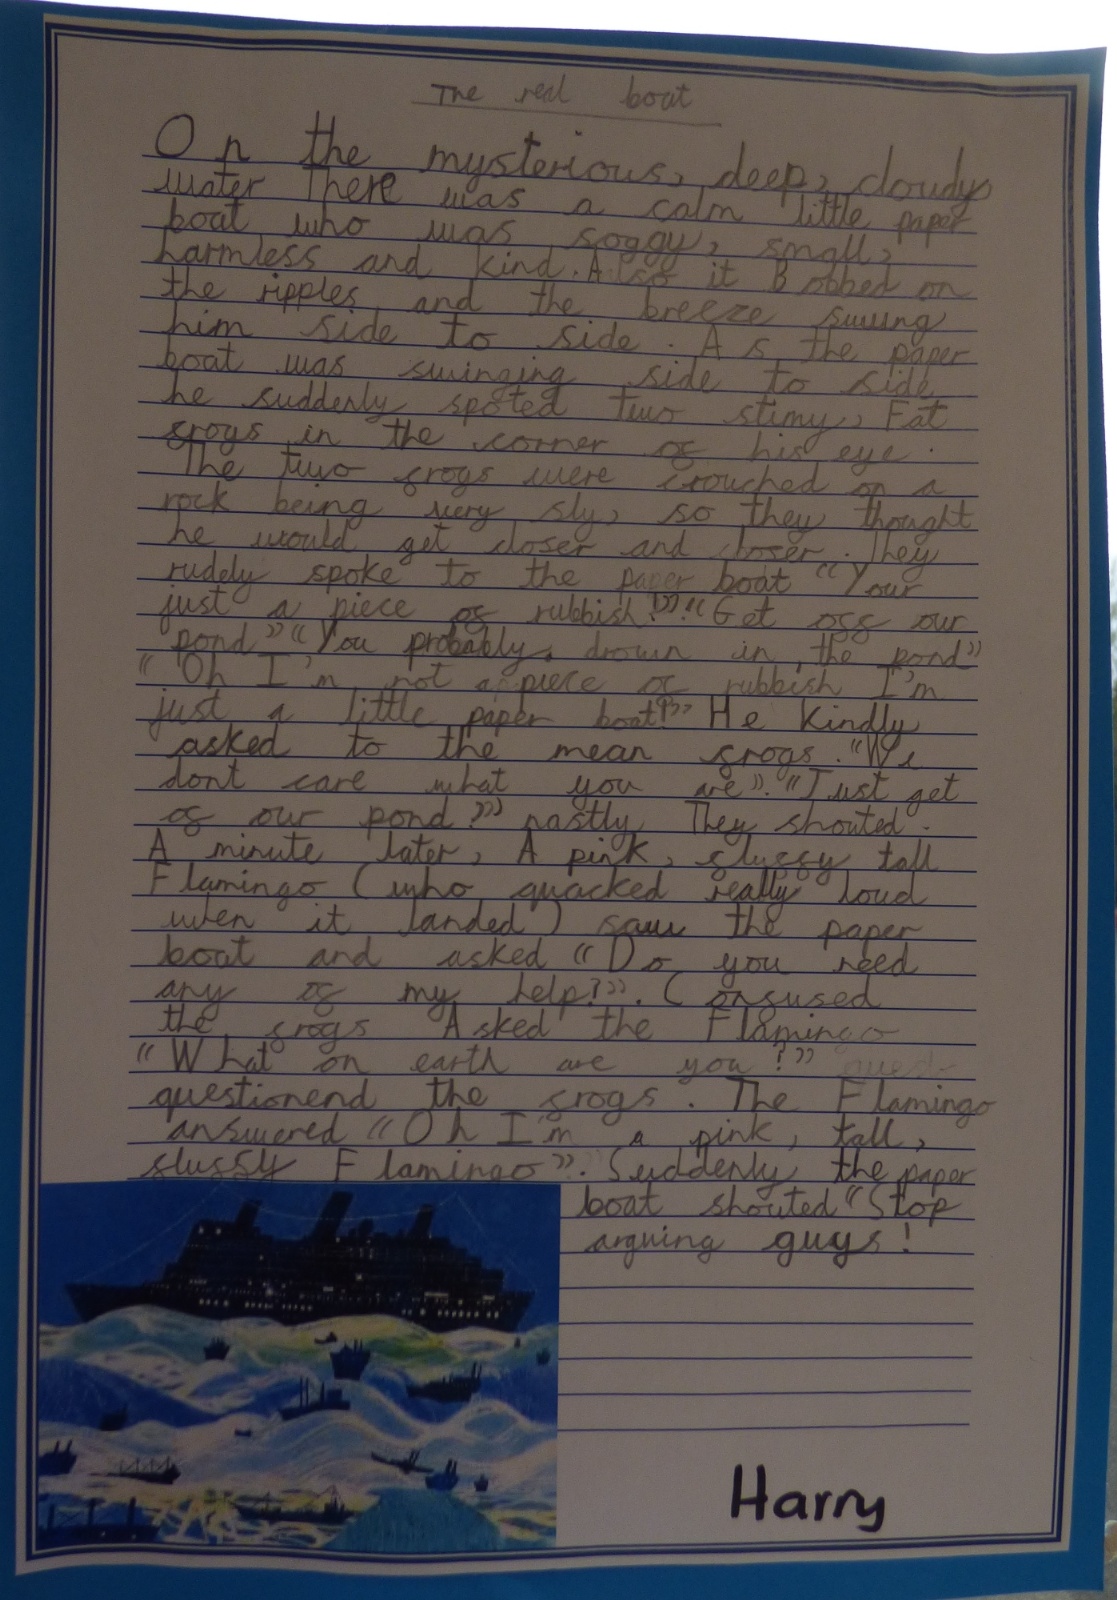 The real boat
On the mysterious, deep, cloudy
water There was a calm little paper
boat who was soggy, small,
harmless and kind. Also it Bobbed on
the ripples and the breeze swung
him side to side. As the paper
boat was swinging side to side
he suddenly spoted two slimy, Fat
frogs in the corner of his eye.
The two frogs were crouched on a
rock being very sly, so they thought
he would get closer and closer. They
rudely spoke to the paper boat "Your
just a piece of rubbish!?" "Get off our
pond" "You probably drown in the pond"
"Oh I'm not a piece of rubbish I'm
just a little paper boat!?" He kindly
asked to the mean frogs. "We
dont care what you are". "Just get
of our pond?" nastly They shouted.
A minute later, A pink, fluffy tall
Flamingo (who quacked really loud
when it landed) saw the paper
boat and asked "Do you need
any of my help?". Confused
the frogs Asked the Flamingo
"What on earth are you?"
questionend the frogs. The Flamingo
answered "Oh I'm a pink, tall,
fluffy Flamingo". Suddenly the paper
boat shouted "Stop
arguing guys!
Harry